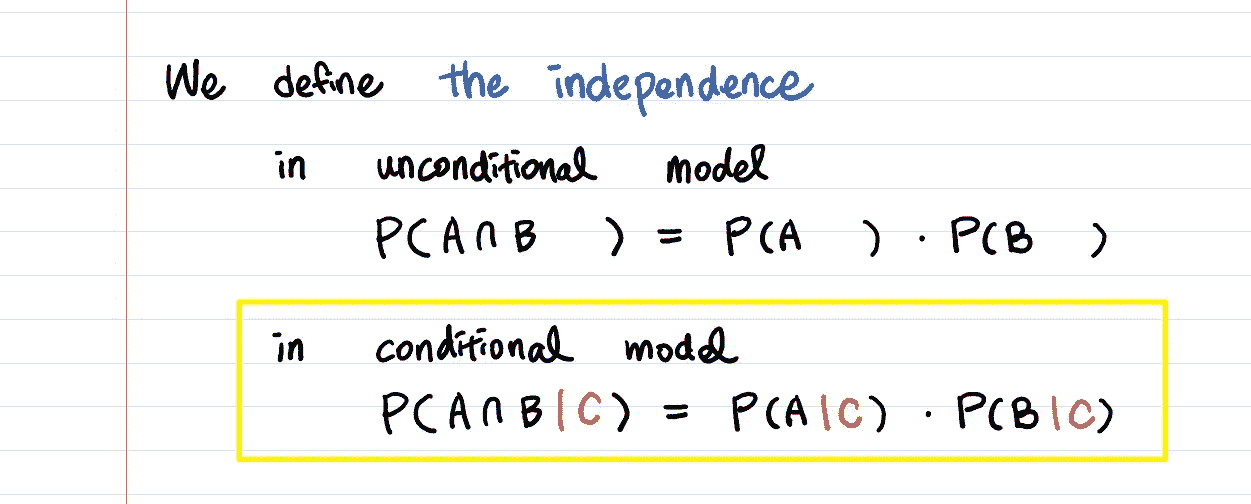 We define the independence
in unconditional model
P(A∩B ) = P(A ) · P(B )
in conditional model
P(A∩B|C) = P(A|C) · P(B|C)